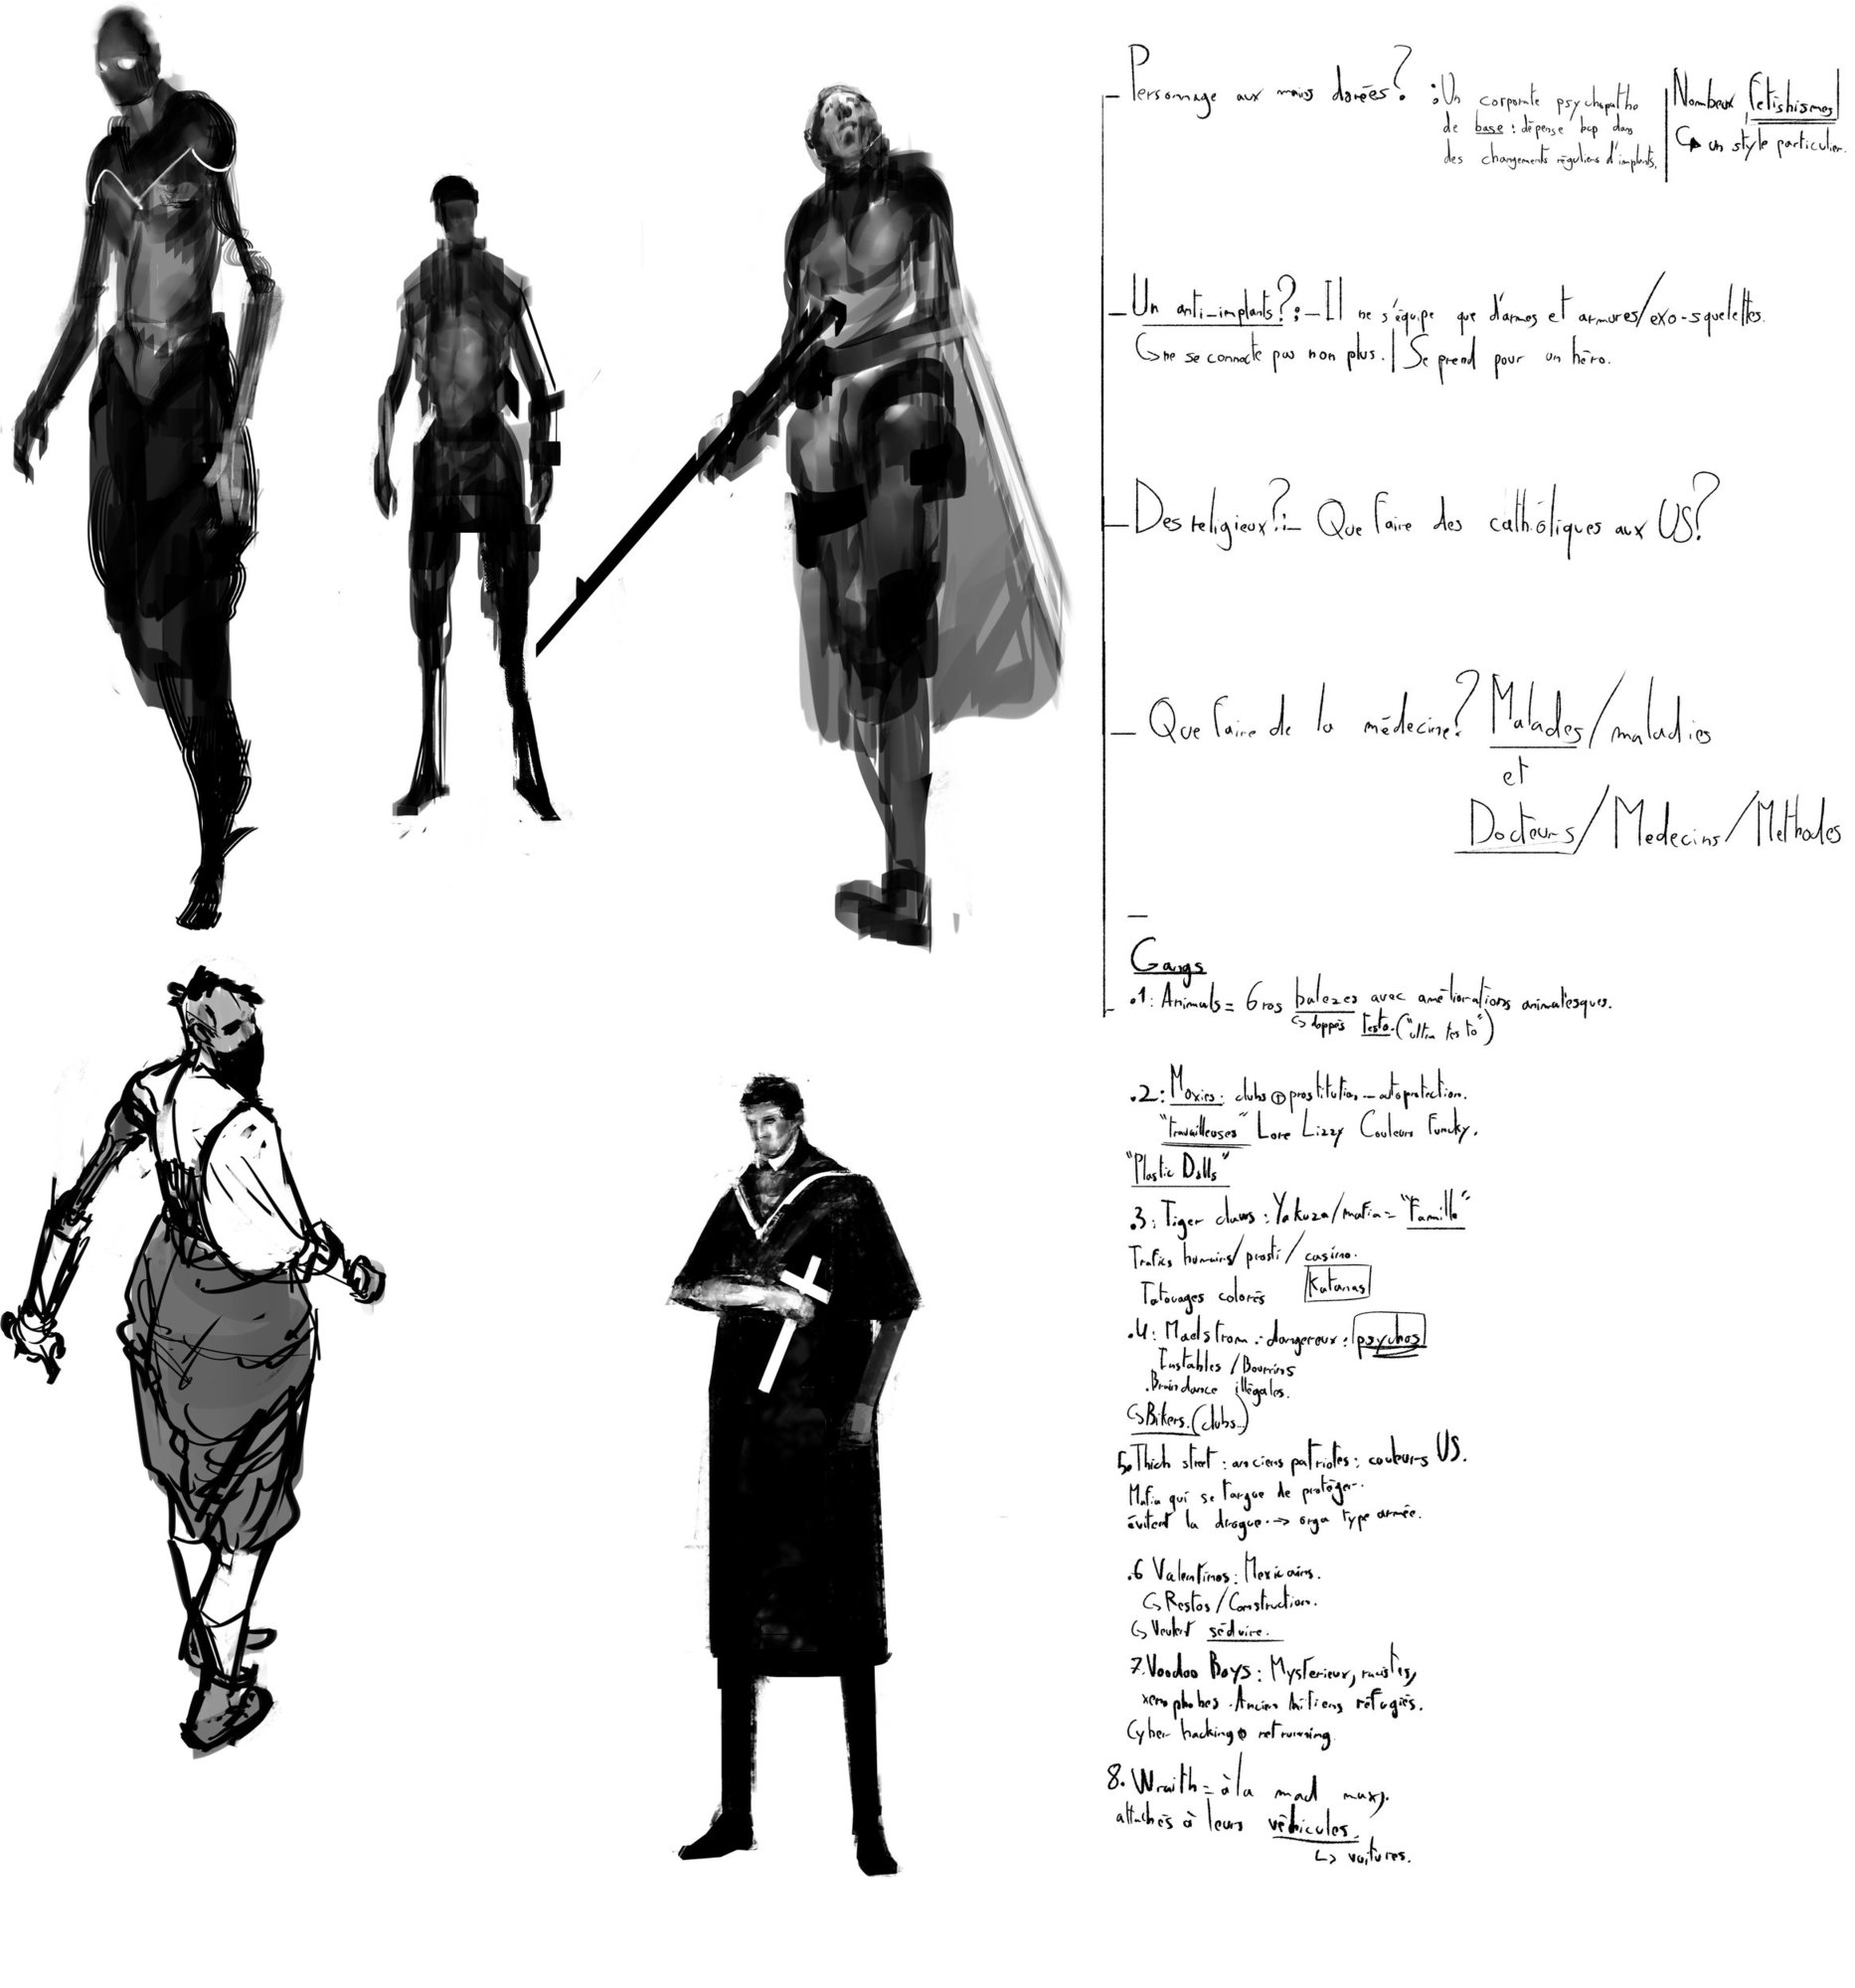 Personnage aux mains dorées? : Un corporate psychopathe
de base : dépense bcp dans
des changements réguliers d'implants.
Nombeux fétishismes
un style particulier.
Un anti-implants? : Il ne s'équipe que d'armes et armures/exo-squelettes.
ne se connecte pas non plus. | Se prend pour un héro.
Des religieux? : Que faire des catholiques aux US?
Que faire de la médecine? Malades/maladies
et
Docteurs/Medecins/Methodes
Gangs
.1: Animals = Gros balezes avec améliorations animalesques.
doppés testo. ("ultra testo")
.2: Moxies: clubs + prostitution - autoprotection.
"travailleuses" Lore Lizzy Couleurs Funcky.
"Plastic Dolls"
.3: Tiger claws : Yakuza/mafia = "Famille"
Trafics humains/prosti/casino.
Tatouages colorés Katanas
.4: Maelstrom : dangereux : psychos
Instables / Bourrins
.Braindance illégales.
Bikers. (clubs)
5. Thich street : anciens patriotes : couleurs US.
Mafia qui se targue de protéger.
évitent la drogue. → orga type armée.
.6 Valentinos : Mexicains.
Restos/Construction.
Veulent séduire.
7. Voodoo Boys : Mysterieux, racistes,
xenophobes. Anciens haïtiens réfugiés.
Cyber hacking netrunning.
8. Wraith = à la mad max).
attachés à leurs véhicules.
↳ voitures.